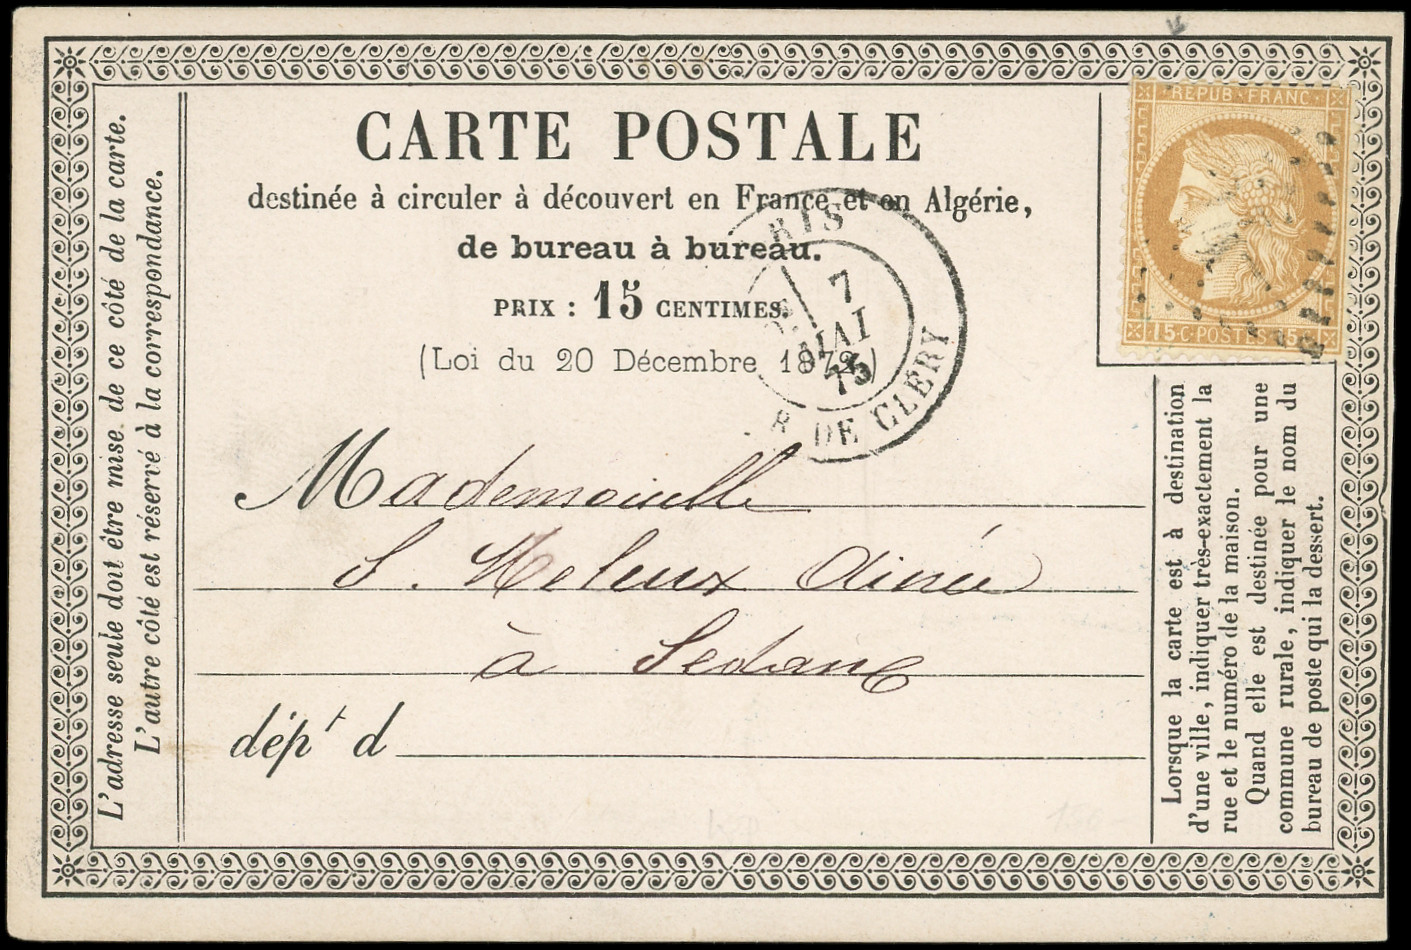 CARTE POSTALE
destinée à circuler à découvert en France et en Algérie,
de bureau à bureau.
PRIX : 15 CENTIMES.
(Loi du 20 Décembre 1872)
REPUB·FRANC·
15·C·POSTES·15·C
RIS
7
MAI
75
R DE CLÉRY
Mademoiselle
S. Meleux Ainée
à Sedan
dépt d
L'adresse seule doit être mise de ce côté de la carte.
L'autre côté est réservé à la correspondance.
Lorsque la carte est à destination
d'une ville, indiquer très-exactement la
rue et le numéro de la maison.
Quand elle est destinée pour une
commune rurale, indiquer le nom du
bureau de poste qui la dessert.